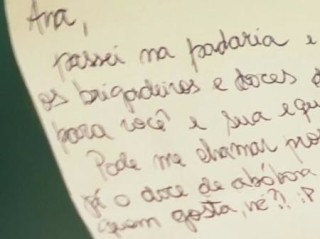 Ana,
passei na padaria e
os brigadeiros e doces d
para você e sua equi
Pode me chamar pros
já o doce de abóbora
quem gosta, né?! :P